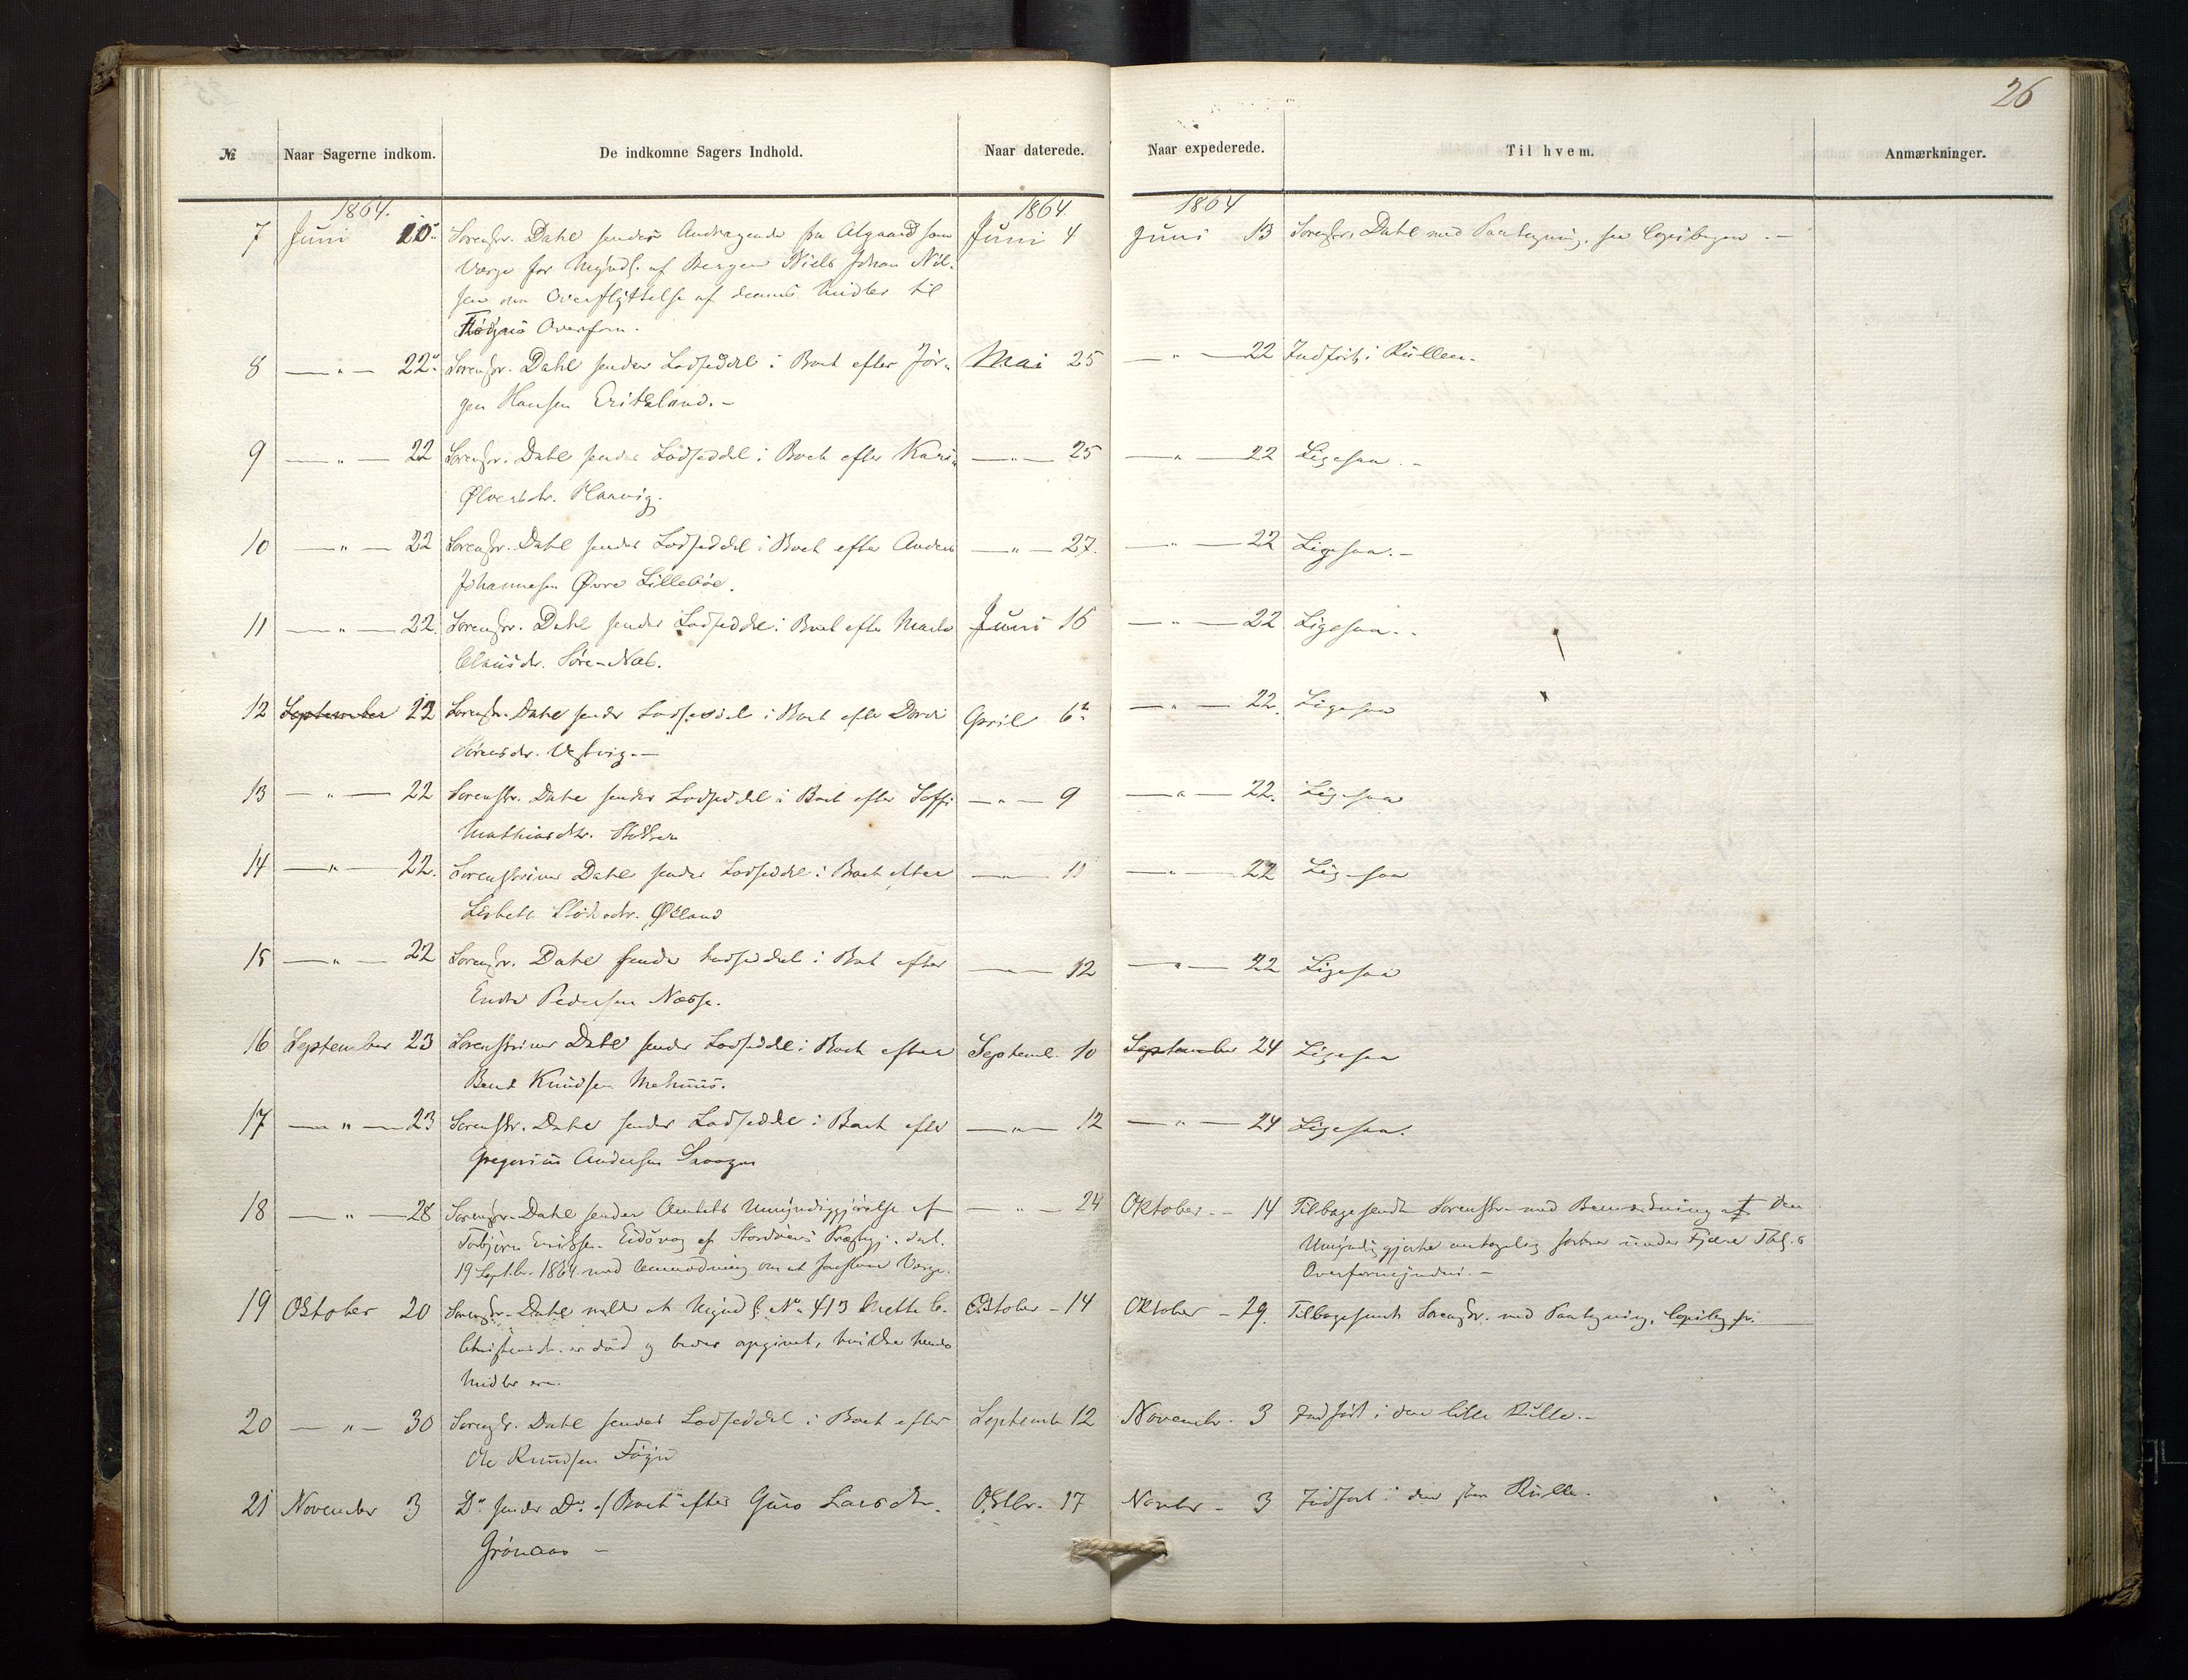 26
№ Naar Sagerne indkom. De indkomne Sagers Indhold. Naar daterede. Naar expederede. Til hvem. Anmærkninger.
1864. 1864. 1864
7 Juni 10 Sorenskr. Dahl sender Andragende fra Algaard som Juni 4 Juni 13 Sorenskr. Dahl med Paategning, se Copibogen.-
Værge for Myndl. af Bergen Niels Johan Niel-
sen om Overflyttelse af dennes Midler til
Overform.
8 — " — 22 Sorenskr. Dahl sender Lodseddel i Boet efter Jør- Mai 25 — " — 22 Indført i Rullen.
gen Hansen Eritsland.-
9 — " — 22 Sorenskr. Dahl sender Lodseddel i Boet efter Kari — " — 25 — " — 22 Ligesaa.-
Ølversdtr. Haavig.
10 — " — 22 Sorenskr. Dahl sender Lodseddel i Boet efter Anders — " — 27. — " — 22 Ligesaa.-
Johannesen Øvre Lillebøe.
11 — " — 22. Sorenskr. Dahl sender Lodseddel i Boet efter Marte Juni 16 — " — 22 Ligesaa.-
Clausdr. Søre-Næs.
12 September 22 Sorenskr. Dahl sender Lodseddel i Boet efter Dordi April 6 — " — 22. Ligesaa
Sørensdr. Vestvig.-
13 — " — 22 Sorenskr. Dahl sender Lodseddel i Boet efter — " — 9 — " — 22. Ligesaa
Mathiasdtr. Stokken
14 — " — 22. Sorenskriver Dahl sender Lodseddel i Boet efter — " — 11 — " — 22 Ligesaa
Lisbeth Økland
15 — " — 22 Sorenskr. Dahl sender Lodseddel i Boet efter — " — 12 — " — 22 Ligesaa
Endre Pedersen Næsse.
16 September 23 Sorenskriver Dahl sender Lodseddel i Boet efter Septemb. 10 September 24 Ligesaa
Bent Knudsen Mehuus.
17 — " — 23 Sorenskr. Dahl sender Lodseddel i Boet efter — " — 12 — " — 24 Ligesaa.
Gregorius Andersen
18 — " — 28 Sorenskr. Dahl sender Amtets Umyndiggjørelse af — " — 24 Oktober - 14 Tilbagesendt Sorenskr. med Bemærkning at den
Torbjørn Eriksen Eidsvaag af Stordøens Præstegj. dat. Umyndiggjorte antagelig sorterer under Fjære Thgl.s
19 Septbr. 1864 med Anmodning om at foreslaae Værge. Overformynderi.-
19 Oktober 20 Sorenskr. Dahl melder at Myndl. No 413 Mette C. Oktober - 14 Oktober - 29. Tilbagesendt Sorenskr. med Paategning,
Christensdr. er død og beder opgivet, hvilke hendes
Midler ere.
20 — " — 30 Sorenskr. Dahl sender Lodseddel i Boet efter Septemb 12 Novembr. 3 Indført i den lille Rulle.-
Ole Knudsen
21 November 3 Do sender Do i Boet efter Guro Larsdtr. Oktbr. 17 Novbr - 3 Indført i den Rulle.
Grönaas -